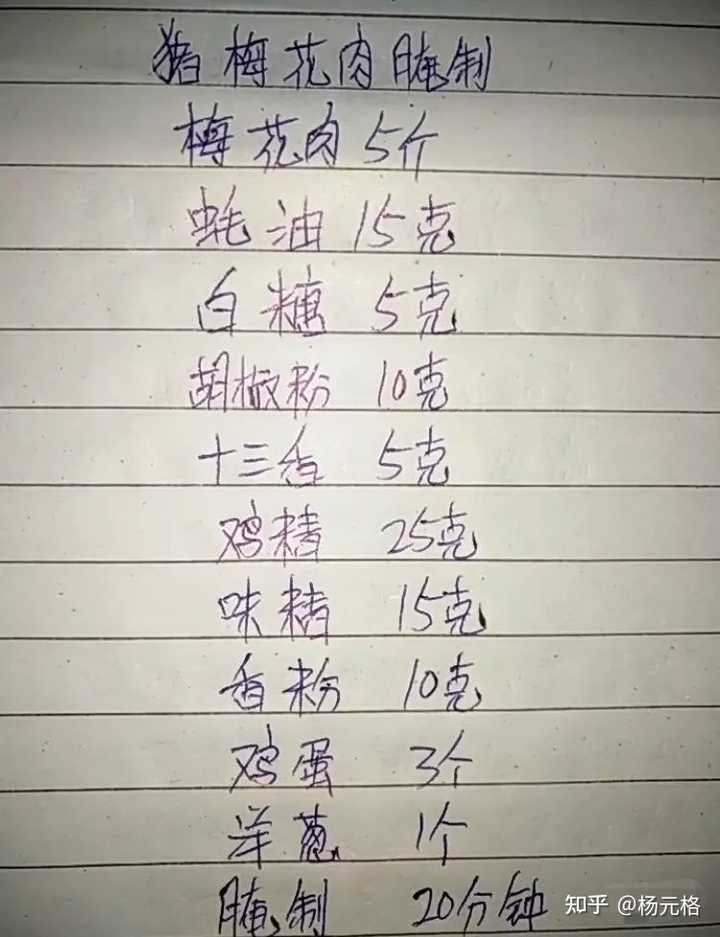 猪梅花肉腌制
梅花肉 5斤
蚝油 15克
白糖 5克
胡椒粉 10克
十三香 5克
鸡精 25克
味精 15克
香粉 10克
鸡蛋 3个
洋葱 1个
腌制 20分钟
知乎 @杨元格